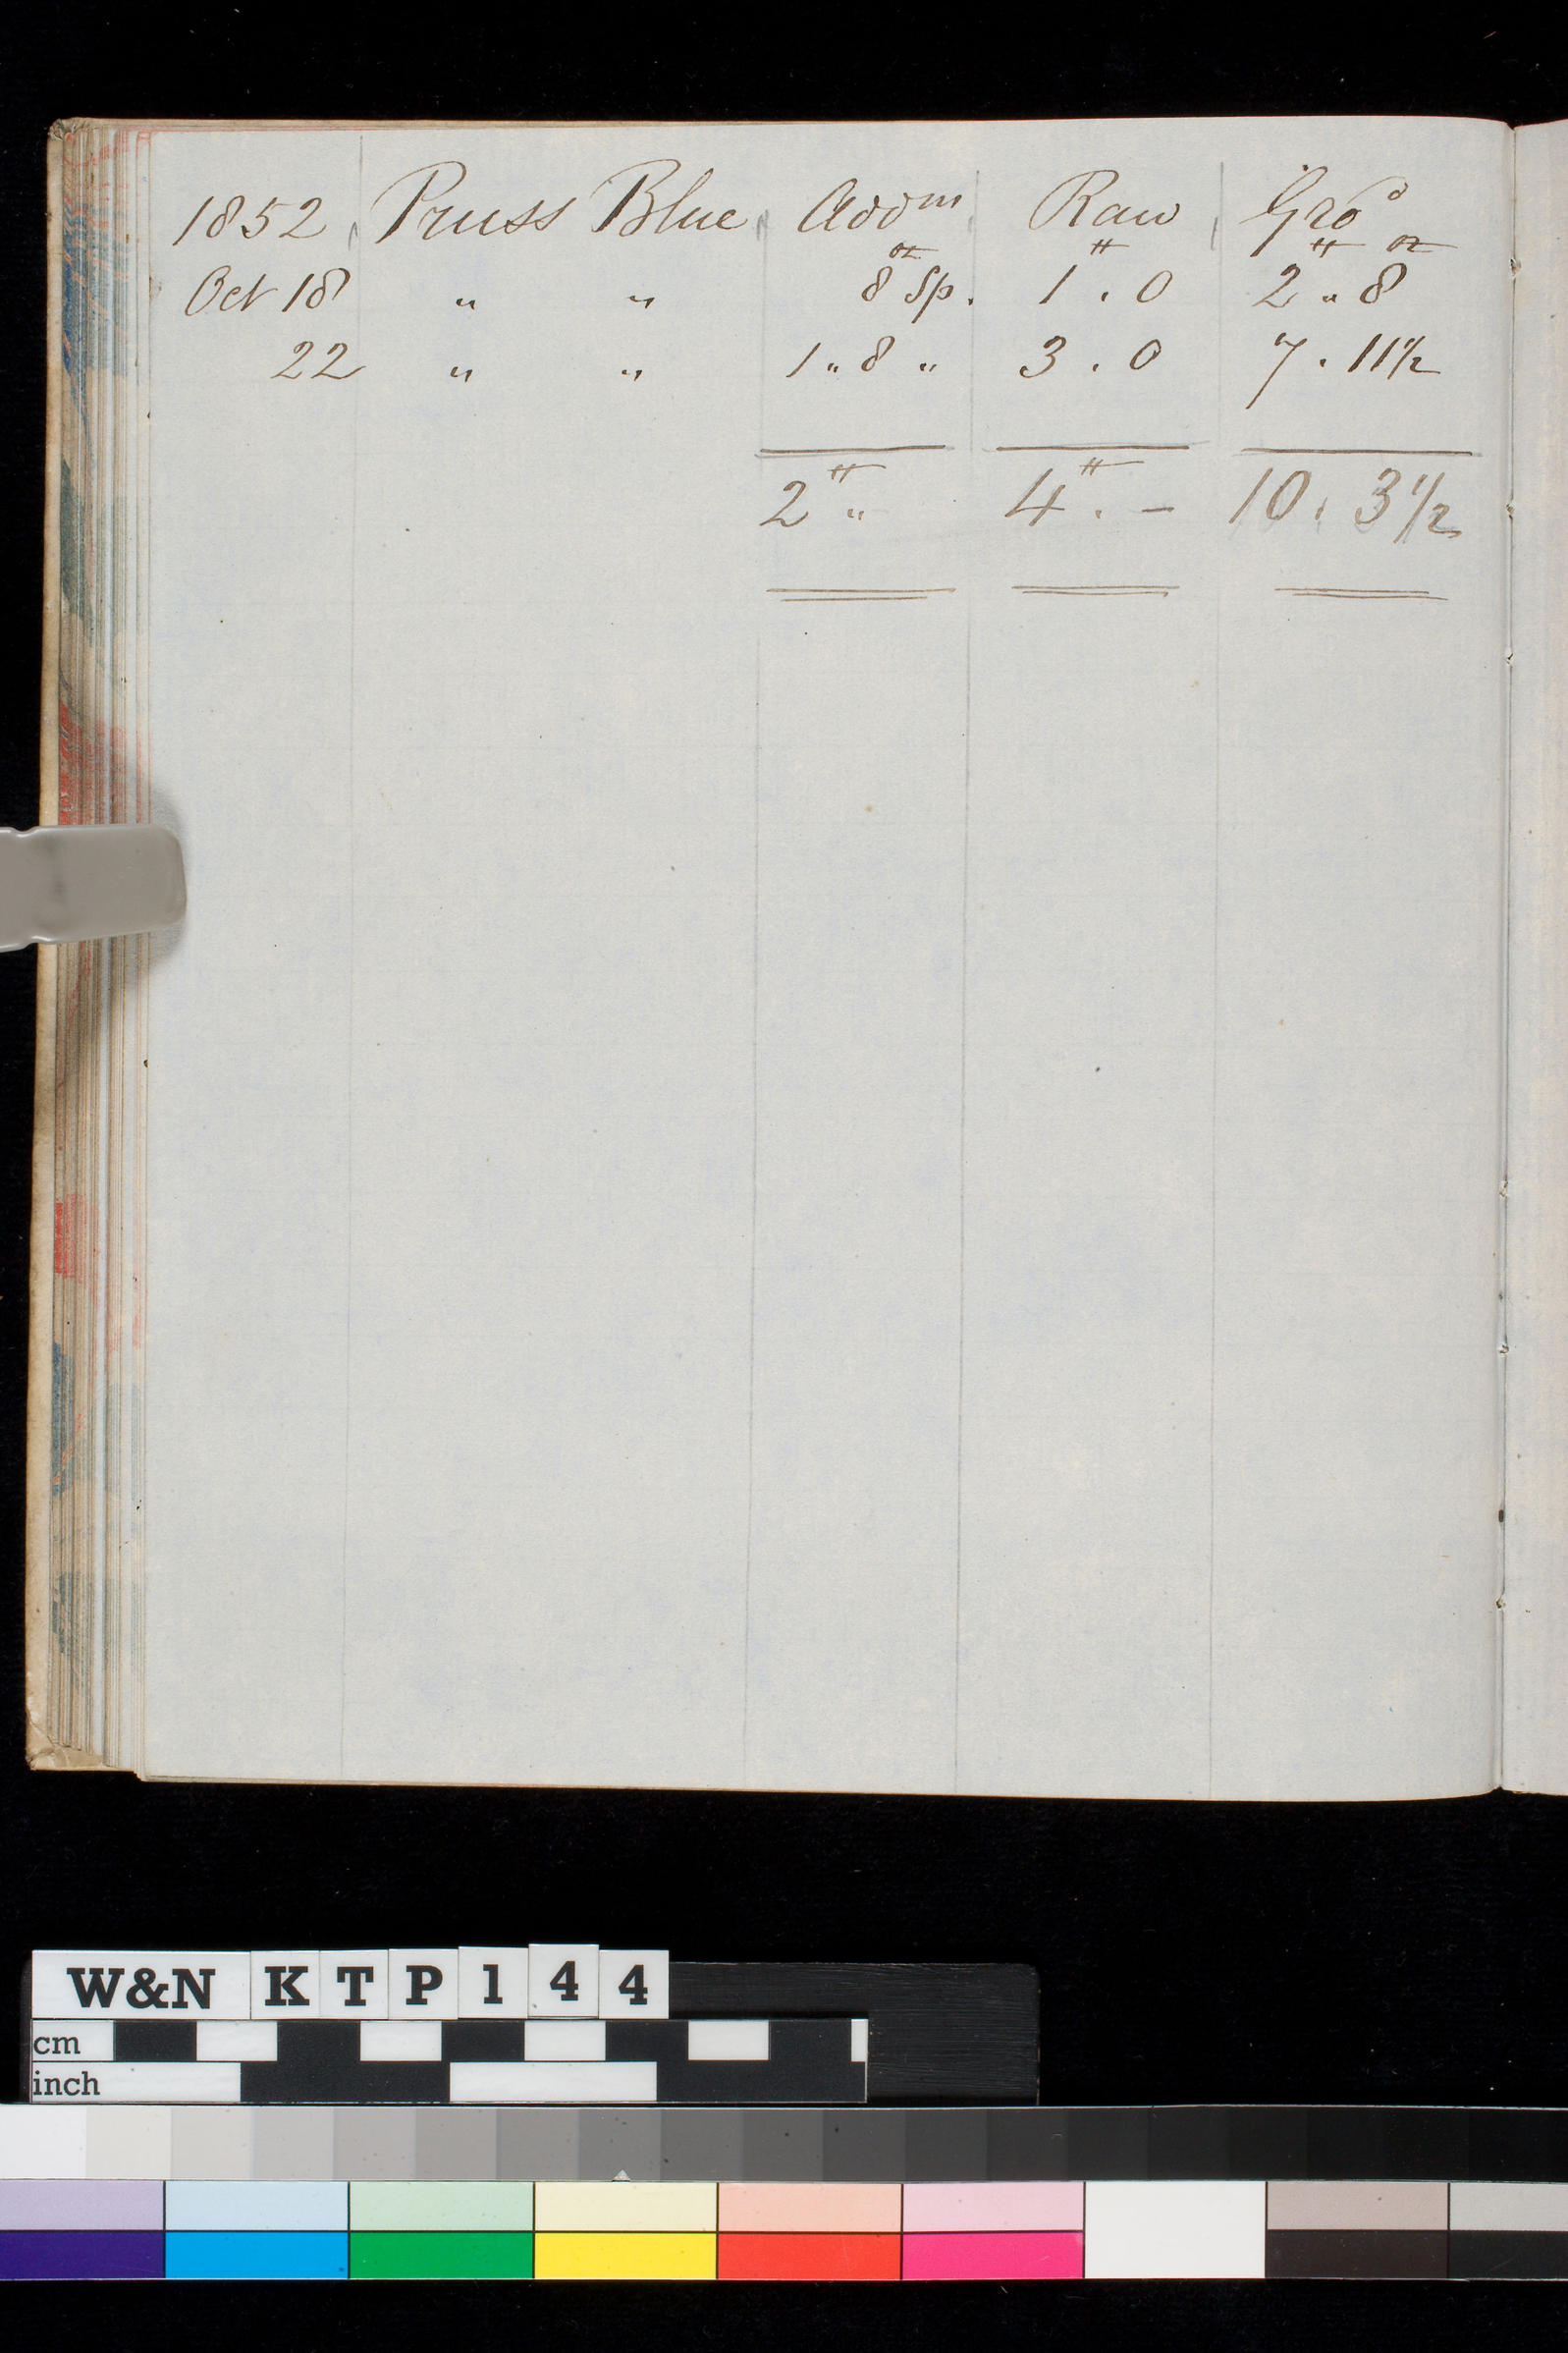 1852 Pruss Blue Addm Raw Gro^d
oz ℔ ℔ oz
Oct 18 " " 8 Sp. 1 . 0 2 " 8
22 " " 1 " 8 " 3 . 0 7 . 11 1/2
℔ ℔
2 " 4 . - 10 . 3 1/2
W&N KTP144
cm
inch